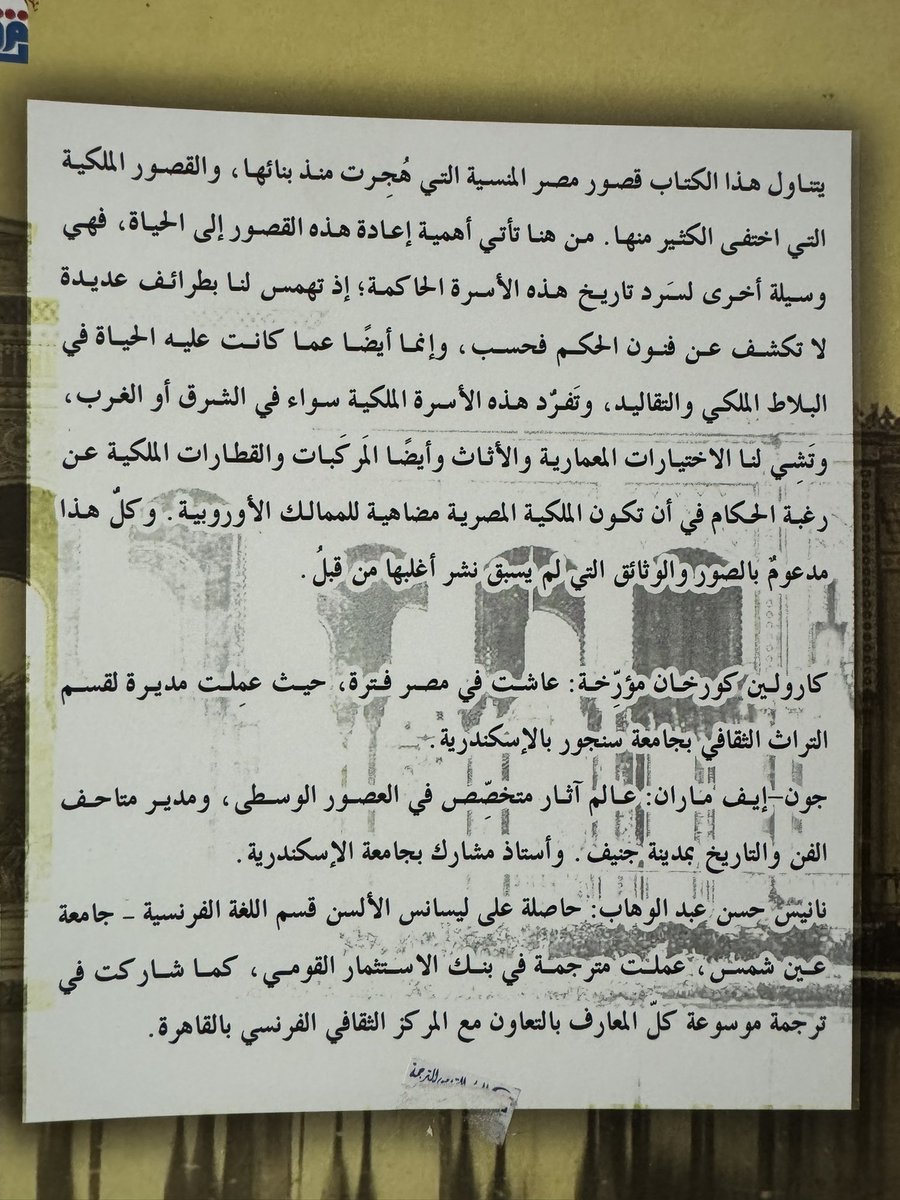 يتناول هذا الكتاب قصور مصر المنسية التي هُجِرت منذ بنائها، والقصور الملكية
التي اختفى الكثير منها. من هنا تأتي أهمية إعادة هذه القصور إلى الحياة، فهي
وسيلة أخرى لسَرد تاريخ هذه الأسرة الحاكمة؛ إذ تهمس لنا بطرائف عديدة
لا تكشف عن فنون الحكم فحسب، وإنما أيضًا عما كانت عليه الحياة في
البلاط الملكي والتقاليد، وتَفرُّد هذه الأسرة الملكية سواء في الشرق أو الغرب،
وتَشِي لنا الاختيارات المعمارية والأثاث وأيضًا المَركَبات والقطارات الملكية عن
رغبة الحكام في أن تكون الملكية المصرية مضاهية للممالك الأوروبية. وكلُّ هذا
مدعومٌ بالصور والوثائق التي لم يسبق نشر أغلبها من قبلُ.
كارولين كورخان مؤرِّخة: عاشت في مصر فترة، حيث عمِلت مديرة لقسم
التراث الثقافي بجامعة سنجور بالإسكندرية.
جون-إيف ماران: عالم آثار متخصِّص في العصور الوسطى، ومدير متاحف
الفن والتاريخ بمدينة جنيف. وأستاذ مشارك بجامعة الإسكندرية.
نانيس حسن عبد الوهاب: حاصلة على ليسانس الألسن قسم اللغة الفرنسية - جامعة
عين شمس، عملت مترجمة في بنك الاستثمار القومي، كما شاركت في
ترجمة موسوعة كلّ المعارف بالتعاون مع المركز الثقافي الفرنسي بالقاهرة.
للترجمة